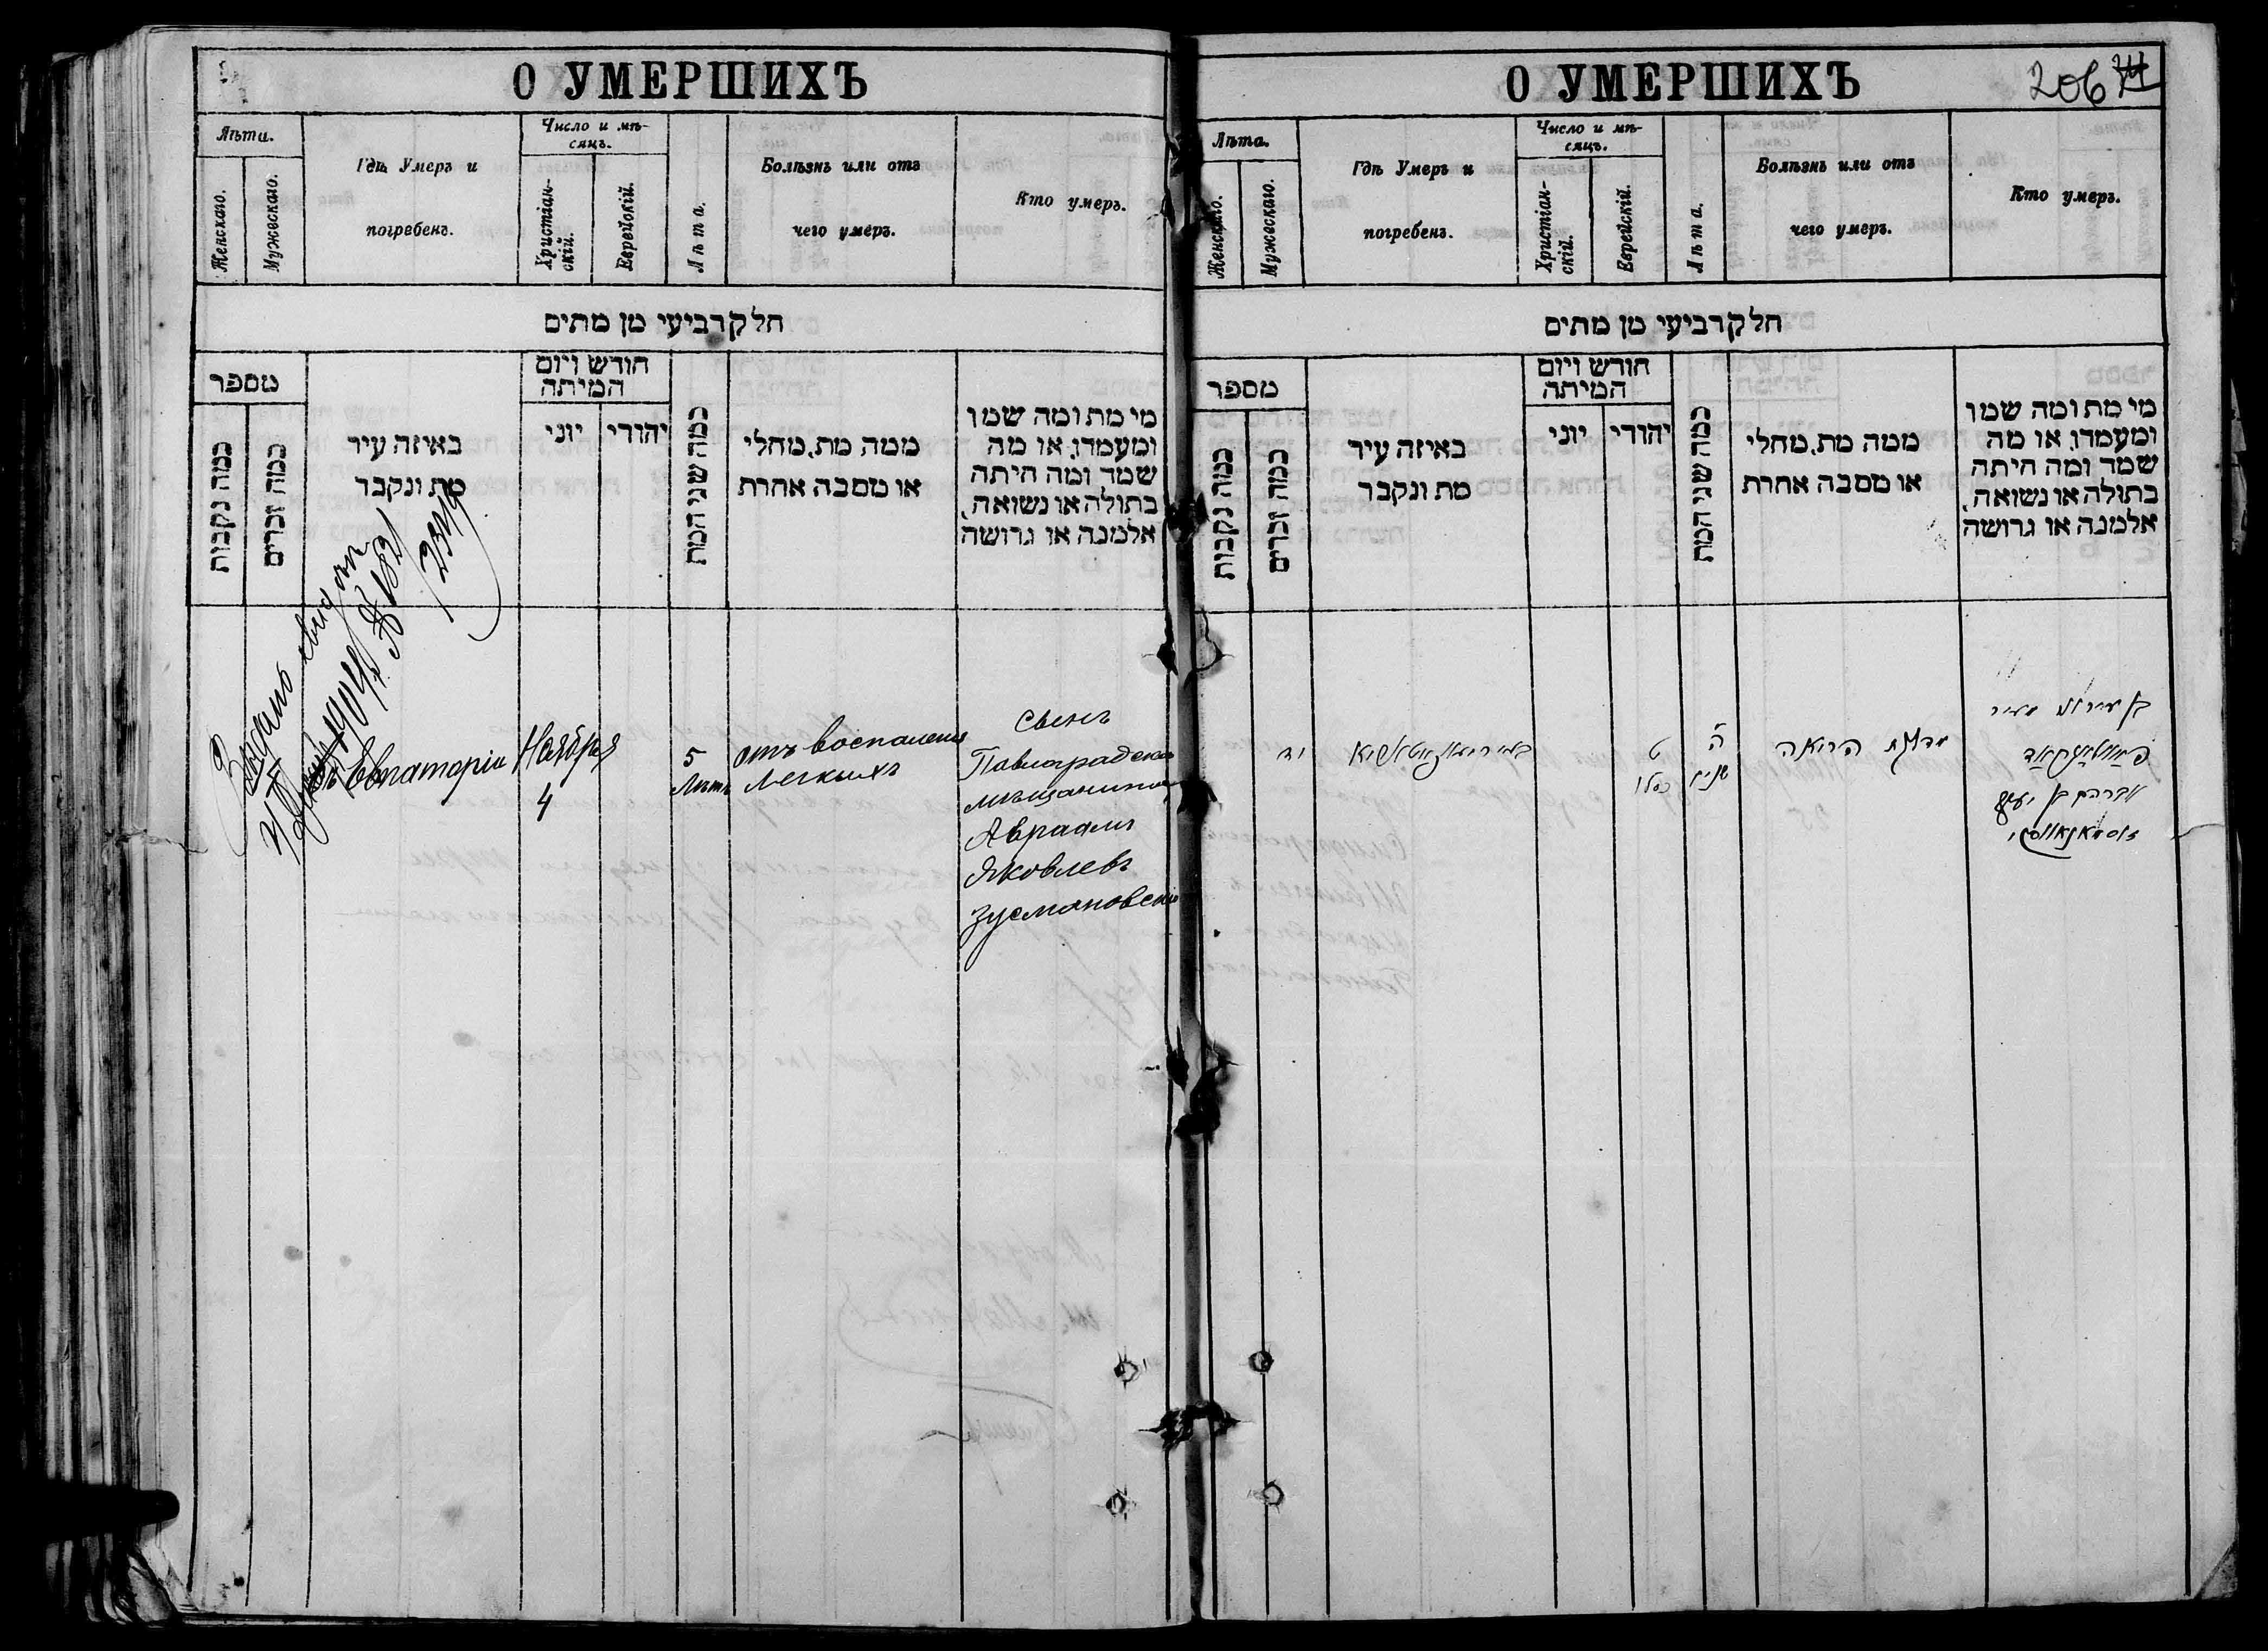 О УМЕРШИХЪ
Лѣта.
Женскаго.
Мужескаго.
Гдѣ Умеръ и
погребенъ.
Число и мѣ-
сяцъ.
Христіан-
скій.
Еврейскій.
Лѣта.
Болѣзнь или отъ
чего умеръ.
Кто умеръ.
חלק רביעי מן מתים
מספר
כמה נקבות
כמה זכרים
באיזה עיר
מת ונקבר
חודש ויום
המיתה
יוני
יהודי
כמה שני המת
ממה מת, מחלי
או מסבה אחרת
מי מת ומה שמו
ומעמדו, או מה
שמה ומה היתה
בתולה או נשואה,
אלמנה או גרושה
Выданъ
1904 г. № 1821
Евпаторіи
Ноября
4
5
Лѣтъ
отъ воспаленія
легкихъ
Сынъ
Павлоградскаго
мѣщанина
Авраамъ
Яковлевъ
Зусмановскій
О УМЕРШИХЪ
206
Лѣта.
Женскаго.
Мужескаго.
Гдѣ Умеръ и
погребенъ.
Число и мѣ-
сяцъ.
Христіан-
скій.
Еврейскій.
Лѣта.
Болѣзнь или отъ
чего умеръ.
Кто умеръ.
חלק רביעי מן מתים
מספר
כמה נקבות
כמה זכרים
באיזה עיר
מת ונקבר
חודש ויום
המיתה
יוני
יהודי
כמה שני המת
ממה מת, מחלי
או מסבה אחרת
מי מת ומה שמו
ומעמדו, או מה
שמה ומה היתה
בתולה או נשואה,
אלמנה או גרושה
ט
כסלו
ה
שנים
הריאה
בן
אברהם בן יעקב